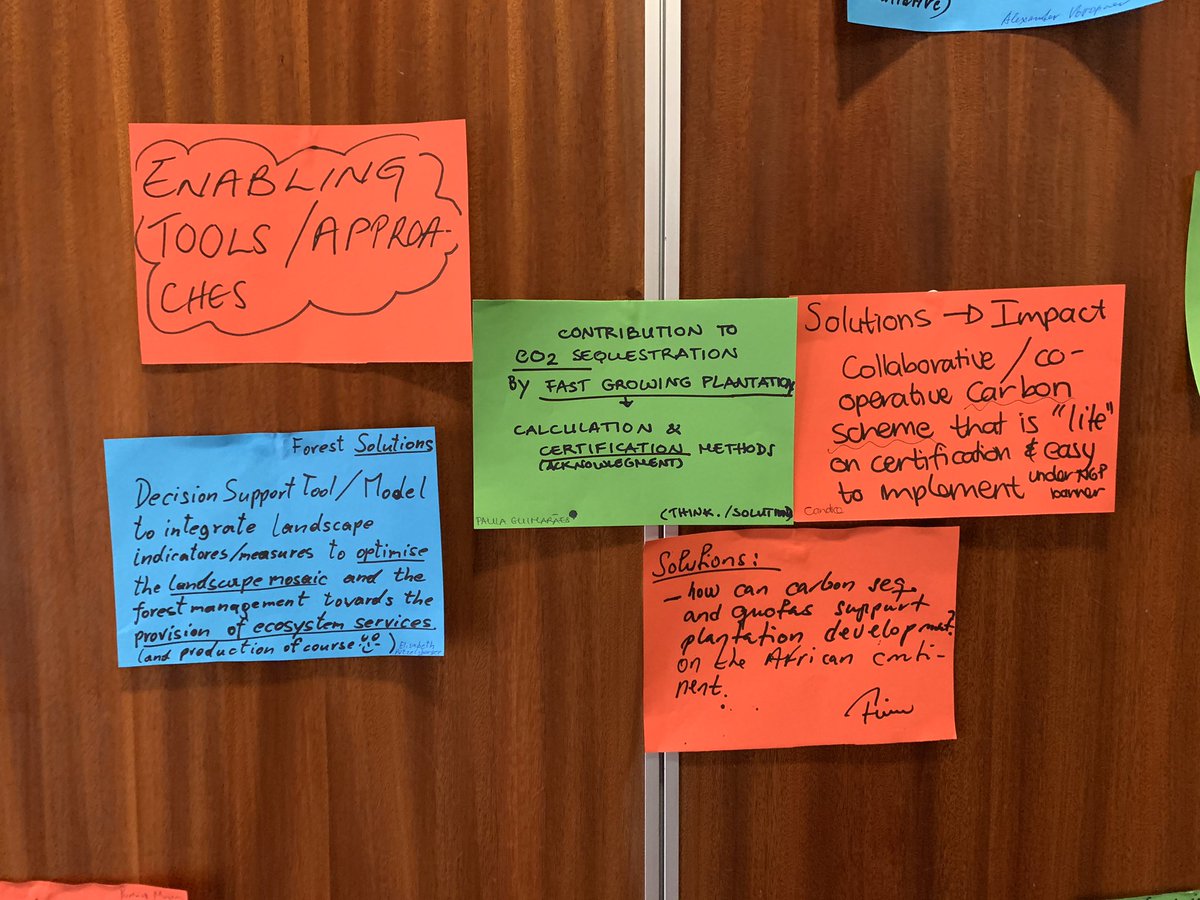 Alexander
ENABLING
TOOLS / APPROA-
CHES
CONTRIBUTION TO
CO2 SEQUESTRATION
BY FAST GROWING PLANTATION
↓
CALCULATION &
CERTIFICATION METHODS
(ACKNOWLEGMENT)
PAULA GUIMARÃES
(THINK./SOLUTION)
Solutions → Impact
Collaborative / co-
operative carbon
scheme that is "lite"
on certification & easy
to implement under NGP
banner
Candra
Forest Solutions
Decision Support Tool / Model
to integrate landscape
indicatores/measures to optimise
the landscape mosaic and the
forest management towards the
provision of ecosystem services
(and production of course )
Elisabeth
Solutions:
- how can carbon seq.
and quotas support
plantation development
on the African conti-
nent.